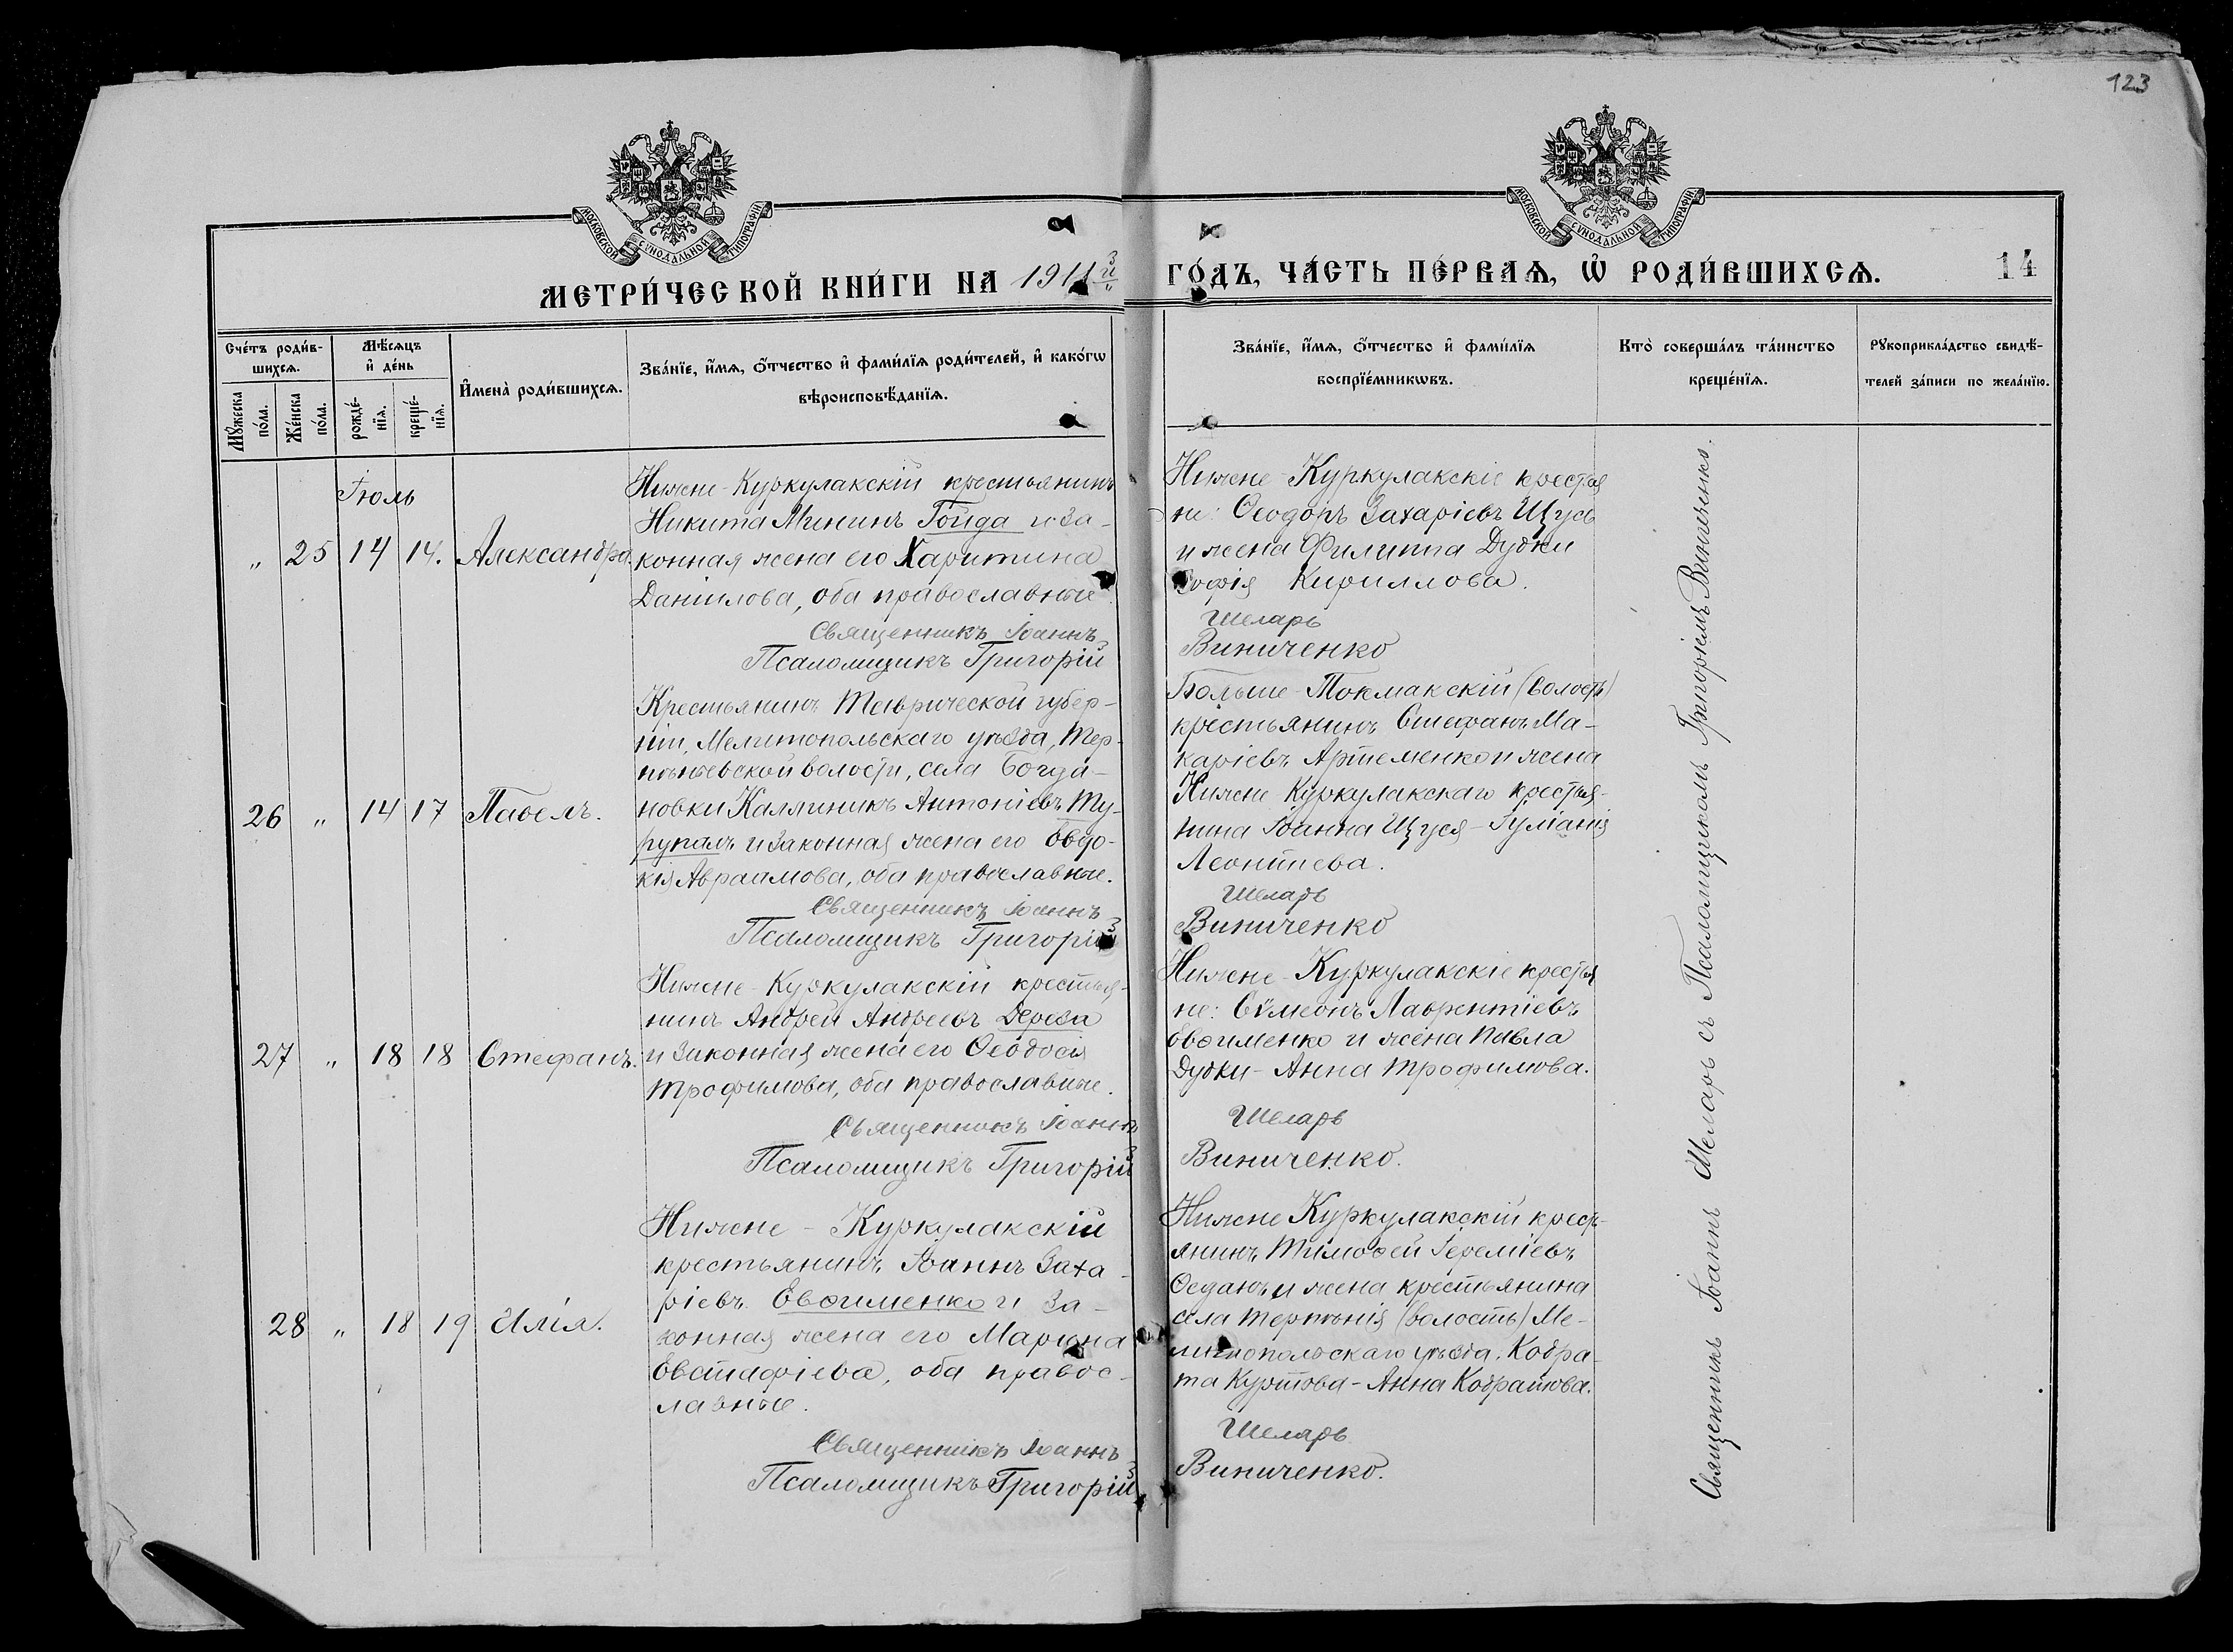 123
МОСКОВСКОЙ СѴНОДАЛЬНОЙ ТИПОГРАФІИ
МОСКОВСКОЙ СѴНОДАЛЬНОЙ ТИПОГРАФІИ
МЕТРИ́ЧЕСКОЙ КНИ́ГИ НА 1911 й
ГО́ДЪ, ЧА́СТЬ ПЕ́РВАѦ, Ѽ РОДИ́ВШИХСѦ.
14
Сче́тъ роди́в-
шихсѧ.
Мꙋ́жеска по́ла.
Же́нска по́ла.
Мѣ́сѧцъ
и҆ де́нь
рожде́-
нїѧ.
креще́-
нїѧ.
И҆мена̀ роди́вшихсѧ.
Зва́нїе, и҆́мѧ, ѻ҆́тчество и҆ фами́лїѧ роди́телей, и҆ како́гѡ
вѣроисповѣ́данїѧ.
Зва́нїе, и҆́мѧ, ѻ҆́тчество и҆ фами́лїѧ
воспрїе́мникѡвъ.
Кто̀ соверша́лъ та́инство
креще́нїѧ.
Рꙋкоприкла́дство свидѣ́-
телей за́писи по жела́нїю.
Іюль
„ 25 14 14. Александра.
Нижне-Куркулакскій крестьянинъ
Никита Мининъ Гойда и за-
конная жена его Харитина
Даніилова, оба православные.
Священникъ Іоаннъ
Псаломщикъ Григорій
Нижне-Куркулакскіе крестья
не: Ѳеодоръ Захаріевъ Щусь
и жена Филиппа Дудки
Софія Кириллова.
Шеларь
Виниченко
26 „ 14 17 Павелъ.
Крестьянинъ Таврической губер-
ніи, Мелитопольскаго уѣзда, Тер-
пѣніевской волости, села Богда-
новки Каллиникъ Антоніевъ Ту-
рупалъ и законная жена его Евдо-
кія Авраамова, оба православные.
Священникъ Іоаннъ
Псаломщикъ Григорій
Больше-Токмакскій (волость)
крестьянинъ Стефанъ Ма-
каріевъ Артеменко и жена
Нижне Куркулакскаго крестья-
нина Іоанна Щуся - Іуліанія
Леонтіева.
Шеларь
Виниченко
27 „ 18 18 Стефанъ.
Нижне-Куркулакскій крестья-
нинъ Андрей Андреевъ Дереза
и законная жена его Ѳеодосія
Трофимова, оба православные.
Священникъ Іоаннъ
Псаломщикъ Григорій
Нижне-Куркулакскіе крестья
не: Сѷмеонъ Лаврентіевъ
Евѳименко и жена Павла
Дудки - Анна Трофимова.
Шеларь
Виниченко.
28 „ 18 19 Илія.
Нижне-Куркулакскій
крестьянинъ Іоаннъ Заха-
ріевъ Евѳименко и за-
конная жена его Марина
Евстафіева, оба правос-
лавные.
Священникъ Іоаннъ
Псаломщикъ Григорій
Нижне Куркулакскій кресть-
янинъ Тимоѳей Іереміевъ
Ѳеданъ и жена крестьянина
села Терпѣнія (волость) Ме-
литопольскаго уѣзда, Кодра-
та Куртова - Анна Кодратова.
Шеларь
Виниченко.
Священникъ Іоаннъ Шеларь съ Псаломщикомъ Григоріемъ Виниченко.